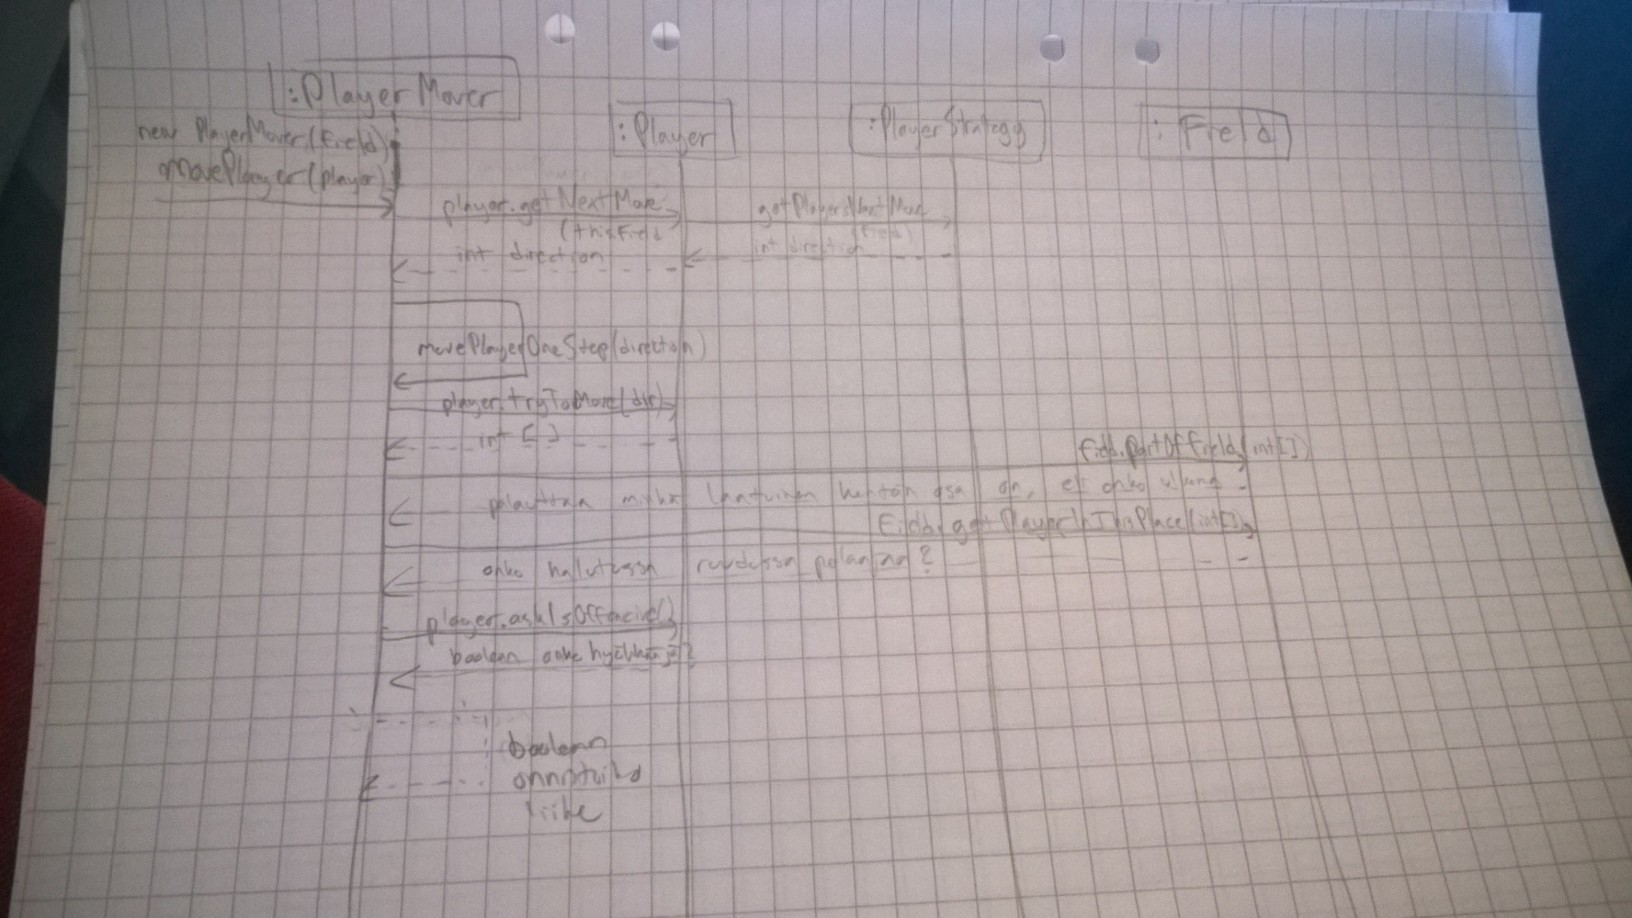 :PlayerMover
:Player
:PlayerStrategy
:Field
new PlayerMover(field)
movePlayer(player)
player.getNextMove
(thisField
getPlayersNextMove
(field)
int direction
int direction
movePlayerOneStep(direction)
player.tryToMove(dir)
int[]
field.partOfField(int[])
palauttaa minkä laatuinen kentän osa on, eli onko
field.getPlayerInThisPlace(int[])
onko halutussa ruudussa pelaajaa?
player.askIsOffencive()
boolean onko hyökkääjä?
boolean
onnistuiko
liike